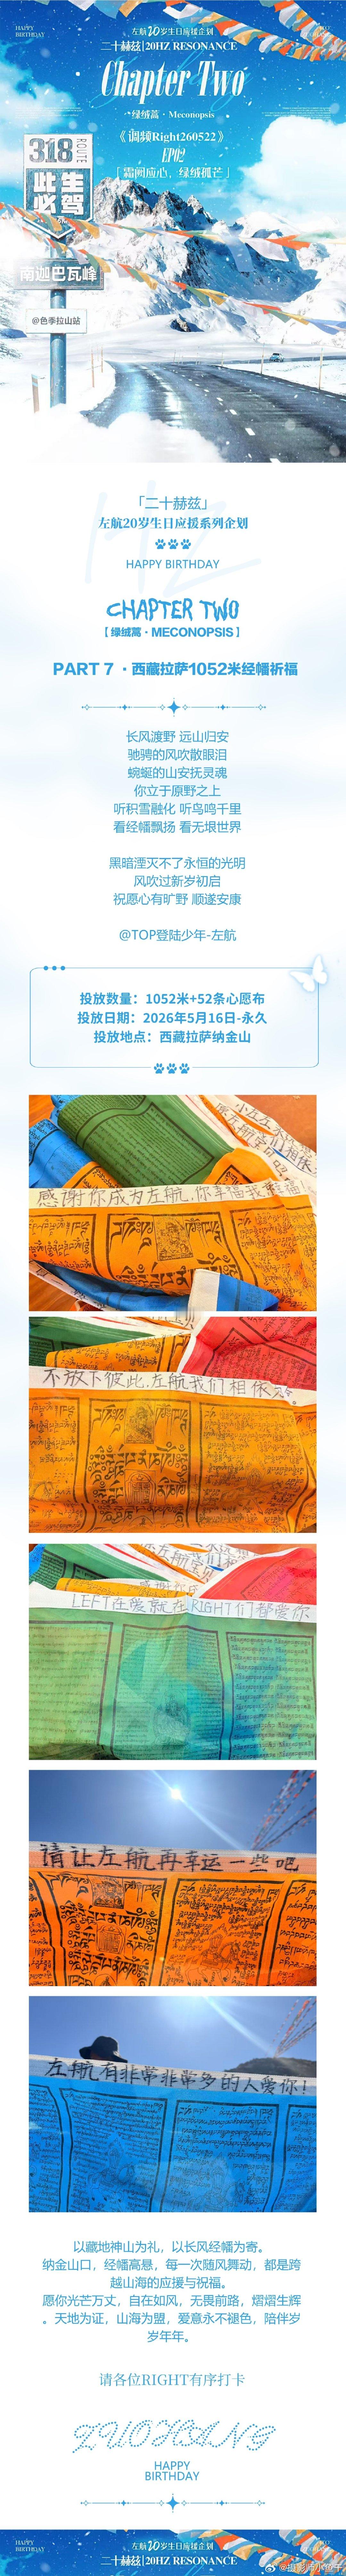 HAPPY
BIRTHDAY
左航20岁生日应援企划
二十赫兹|20HZ RESONANCE
Chapter Two
·绿绒蒿·Meconopsis
《调频Right260522》
EP02
「霜阙应心，绿绒孤芒」
318
ROUTE
此生
必驾
南迦巴瓦峰
@色季拉山站
Hz
「二十赫兹」
左航20岁生日应援系列企划
HAPPY BIRTHDAY
CHAPTER TWO
【绿绒蒿·MECONOPSIS】
PART 7 ·西藏拉萨1052米经幡祈福
长风渡野 远山归安
驰骋的风吹散眼泪
蜿蜒的山安抚灵魂
你立于原野之上
听积雪融化 听鸟鸣千里
看经幡飘扬 看无垠世界
黑暗湮灭不了永恒的光明
风吹过新岁初启
祝愿心有旷野 顺遂安康
@TOP登陆少年-左航
投放数量：1052米+52条心愿布
投放日期：2026年5月16日-永久
投放地点：西藏拉萨纳金山
感谢你成为左航,你幸福我
不放下彼此,左航我们相依
LEFT在哪就在RIGHT们都爱你
请让左航再幸运一些吧
左航有非常非常多的人爱你!
以藏地神山为礼，以长风经幡为寄。
纳金山口，经幡高悬，每一次随风舞动，都是跨
越山海的应援与祝福。
愿你光芒万丈，自在如风，无畏前路，熠熠生辉
。天地为证，山海为盟，爱意永不褪色，陪伴岁
岁年年。
请各位RIGHT有序打卡
ZUOHANG
HAPPY
BIRTHDAY
HAPPY
BIRTHDAY
左航20岁生日应援企划
二十赫兹|20HZ RESONANCE